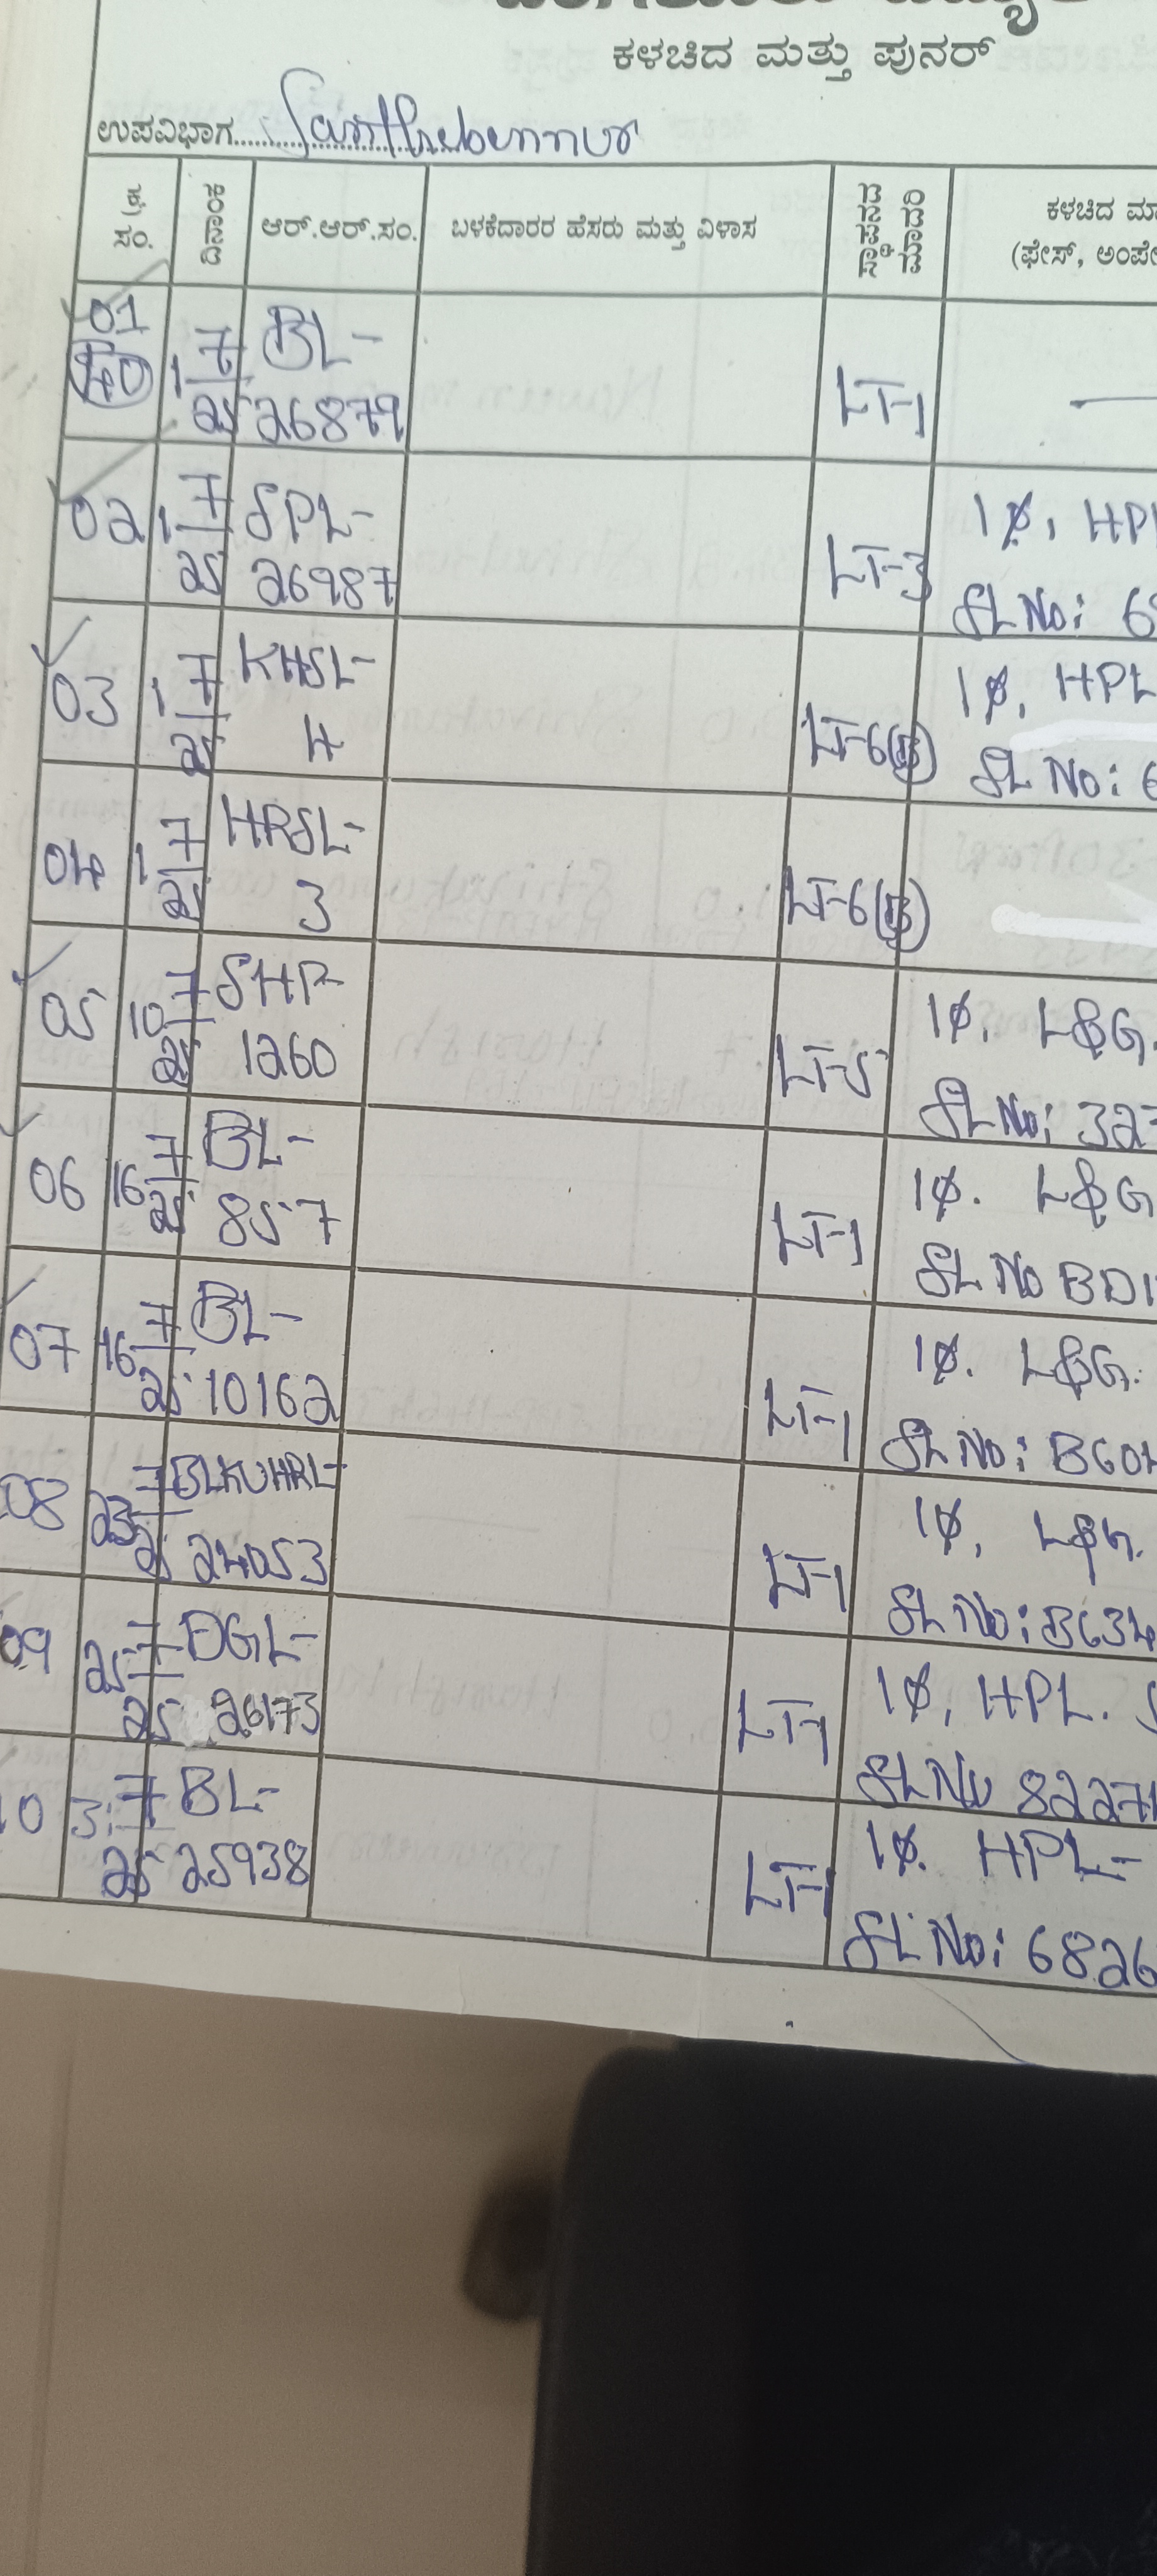 ಕಳಚಿದ ಮತ್ತು ಪುನರ್
ಉಪವಿಭಾಗ Santhebennur
ಕ್ರ. ಸಂ. ದಿನಾಂಕ ಆರ್.ಆರ್.ಸಂ. ಬಳಕೆದಾರರ ಹೆಸರು ಮತ್ತು ವಿಳಾಸ ಸ್ಥಾಪನದ ಮಾದರಿ ಕಳಚಿದ ಮಾ
(ಫೇಸ್, ಅಂಪೇ
01 1 7 BL-
40 25 26879 LT-1
02 1 7 SPL- 1φ, HPL
25 26987 LT-3 SL No: 6
03 1 7 KHSL- 1φ, HPL
25 4 LT-6 SL No: 6
04 1 7 HRSL-
25 3 LT-6
05 10 7 SHP- 1φ, L&G.
25 1260 LT-5 SL No: 327
06 16 7 BL- 1φ. L&G
25 857 LT-1 SL No BD1
07 16 7 BL- 1φ. L&G.
25 10162 LT-1 SL No:
08 23 7 BLKUHRL- 1φ, L&G.
25 24053 LT-1 SL No:
09 25 7 DGL- 1φ, HPL.
25 26173 LT-1 SL No 82271
10 7 BL- 1φ. HPL-
25 25938 LT-1 SL No: 6826